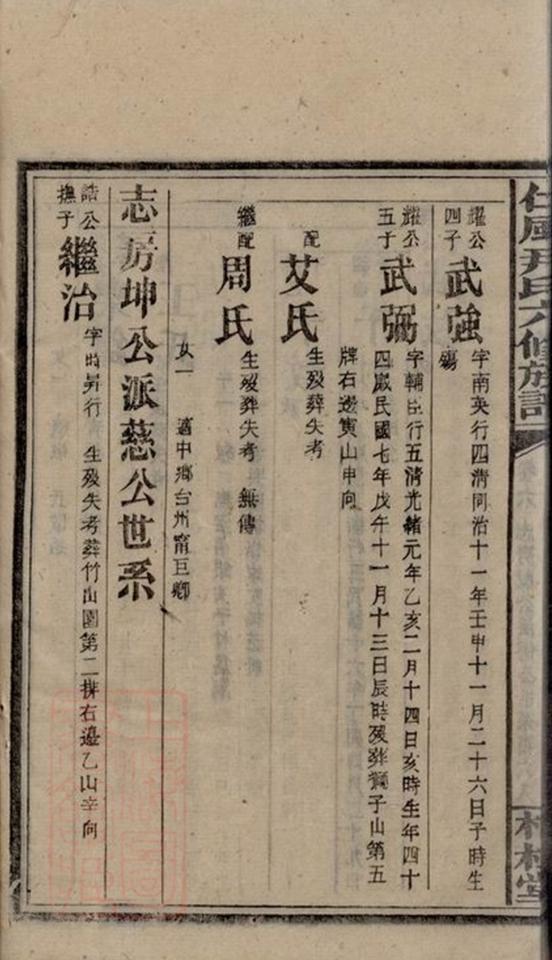 氏六修族譜
耀公四子 武強 字南英行四清同治十一年壬申十一月二十六日子時生
殤
耀公五子 武弼 字輔臣行五清光緒元年乙亥二月十四日亥時生年四十
四歲民國七年戊午十一月十三日辰時歿葬獅子山第五
牌右邊寅山申向
配 艾氏 生歿葬失考
繼配 周氏 生歿葬失考 無傳
女一 適中鄉台州甯巨卿
志房坤公派慈公世系
誥公撫子 繼治 字時昇行 生歿失考葬竹山園第二排右邊乙山辛向